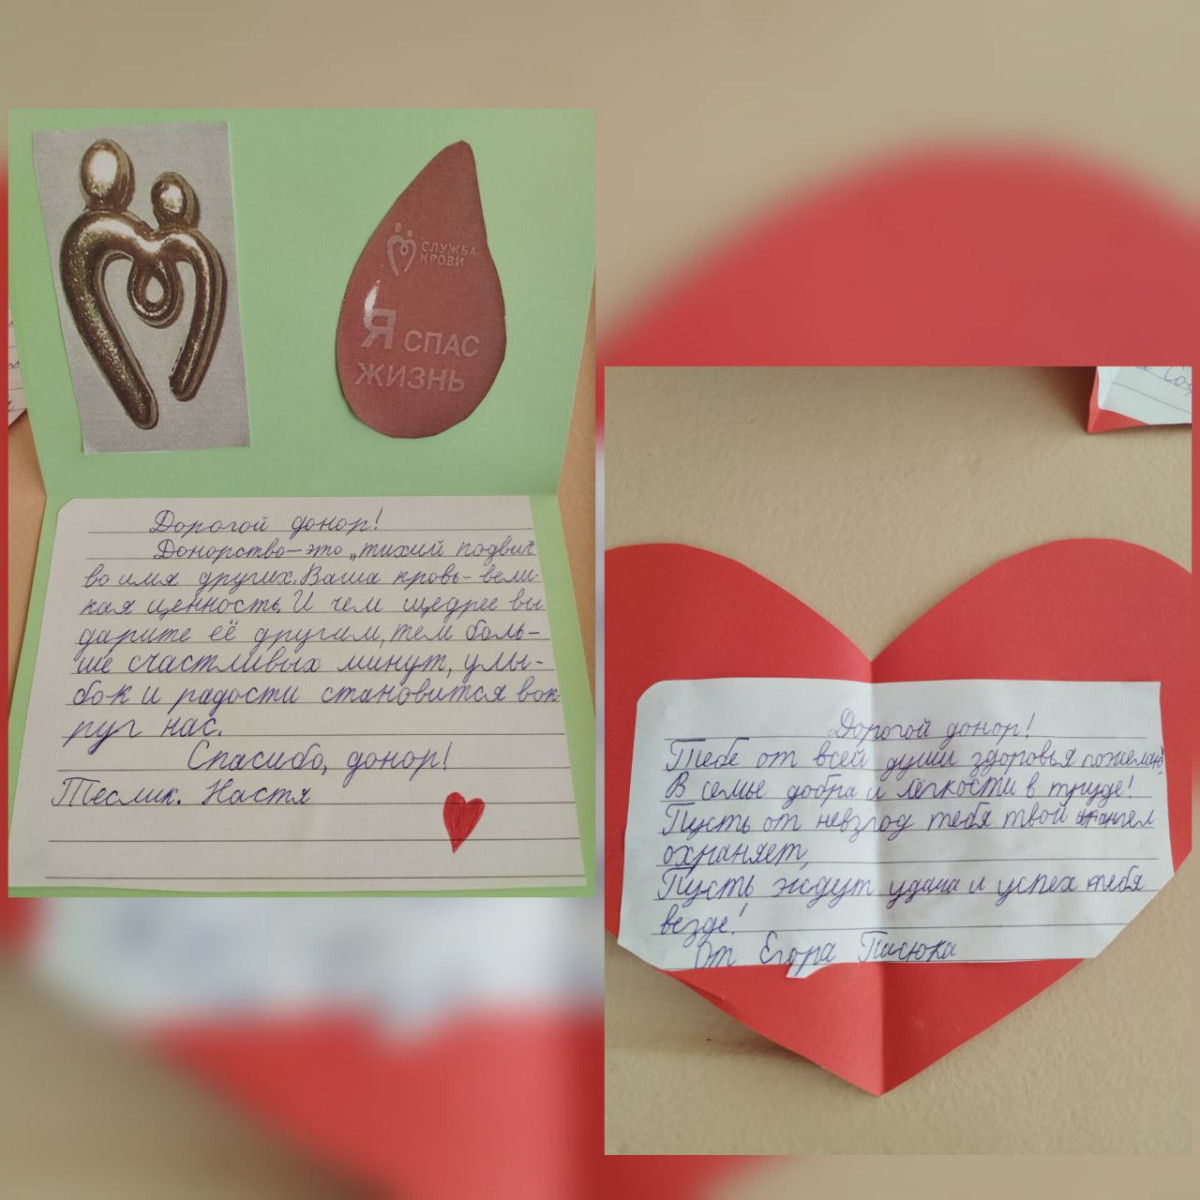 СЛУЖБА
КРОВИ
Я СПАС
ЖИЗНЬ
Дорогой донор!
Донорство – это „тихий подвиг
во имя других. Ваша кровь – вели-
кая ценность. И чем щедрее вы
дарите её другим, тем боль-
ше счастливых минут, улы-
бок и радости становится вок-
руг нас.
Спасибо, донор!
Теслик. Настя
Дорогой донор!
Тебе от всей души здоровья пожелаю!
В семье добра и лёгкости в труде!
Пусть от невзгод тебя твой ангел
охраняет,
Пусть ждут удача и успех тебя
везде!
От Егора Писюка